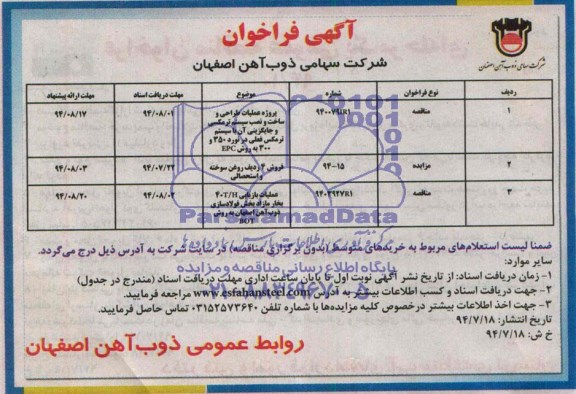 آگهی فراخوان
شرکت سهامی ذوب آهن اصفهان
شرکت سهامی ذوب آهن اصفهان
ردیف نوع فراخوان شماره موضوع مهلت دریافت اسناد مهلت ارائه پیشنهاد
۱ مناقصه پروژه عملیات طراحی و ۹۴/۰۸/۰۱ ۹۴/۰۸/۱۷
ساخت و نصب سیستم ترمکسی
و جایگزینی آن با سیستم
ترمکس فعلی در نورد ۳۵۰ و
۳۰۰ به روش EPC
۲ مزایده ۹۴-۱۵ فروش ۴ ردیف روغن سوخته ۹۴/۰۷/۲۲ ۹۴/۰۸/۰۳
و استحصالی
۳ مناقصه ۹۴۰۳۹۲۷R1 عملیات بازیابی ۴۰T/H ۹۴/۰۸/۰۲ ۹۴/۰۸/۲۰
بخار مازاد بخش فولادسازی
ذوب آهن اصفهان به روش
BOT
ParsNamadData
ضمنا لیست استعلام‌های مربوط به خریدهای متوسط (بدون برگزاری مناقصه) در سایت شرکت به آدرس ذیل درج می‌گردد.
پایگاه اطلاع رسانی مناقصه و مزایده
سایر موارد:
۱- زمان دریافت اسناد: از تاریخ نشر آگهی نوبت اول تا پایان ساعت اداری مهلت دریافت اسناد (مندرج در جدول)
۲- جهت دریافت اسناد و کسب اطلاعات بیشتر به آدرس www.esfahansteel.com مراجعه فرمایید.
۳- جهت اخذ اطلاعات بیشتر درخصوص کلیه مزایده‌ها با شماره تلفن ۰۳۱۵۲۵۷۳۶۴۰ تماس حاصل فرمایید.
تاریخ انتشار: ۹۴/۷/۱۸
خ ش: ۹۴/۷/۱۸
روابط عمومی ذوب آهن اصفهان